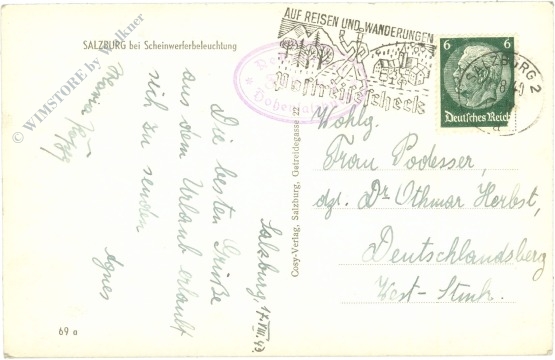 SALZBURG bei Scheinwerferbeleuchtung
© WIMSTORE by Walkner
AUF REISEN UND WANDERUNGEN
Postreisescheck
6 6
Deutsches Reich
SALZBURG 2
Salzburg, 17.VIII.40.
Die besten Grüße
aus dem Urlaub erlaubt
sich zu senden
Agnes
Cosy-Verlag, Salzburg, Getreidegasse 22
Wohlg.
Frau Podesser,
dzt. Dr Othmar Herbst,
Deutschlandsberg
West-Stmk.
69 a